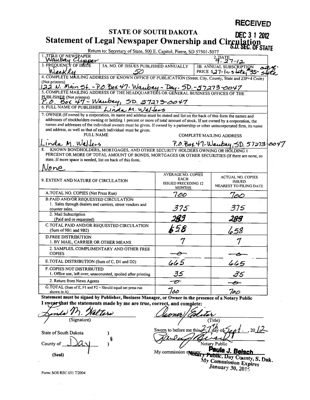 RECEIVED
DEC 31 2012
S.D. SEC. OF STATE
STATE OF SOUTH DAKOTA
Statement of Legal Newspaper Ownership and Circulation
Return to: Secretary of State, 500 E. Capitol, Pierre, SD 57501-5077
1. TITLE OF NEWSPAPER
Waubay Clipper
2. DATE
9-27-12
3. FREQUENCY OF ISSUE
Weekly
3A. NO. OF ISSUES PUBLISHED ANNUALLY
52
3B. ANNUAL SUBSCRIPTION
PRICE
4. COMPLETE MAILING ADDRESS OF KNOWN OFFICE OF PUBLICATION (Street, City, County, State and ZIP+4 Code)
(Not printers)
122 N. Main St. - P.O. Box 47 - Waubay - Day - SD - 57273-0047
5. COMPLETE MAILING ADDRESS OF THE HEADQUARTERS OR GENERAL BUSINESS OFFICES OF THE
PUBLISHER (Not printer)
P.O. Box 47 - Waubay, SD 57273-0047
6. FULL NAME OF PUBLISHER: Linda M. Walters
7. OWNER (If owned by a corporation, its name and address must be stated and list on the back of this form the names and
addresses of stockholders owning or holding 1 percent or more of total amount of stock. If not owned by a corporation, the
names and addresses of the individual owners must be given. If owned by a partnership or other unincorporated firm, its name
and address, as well as that of each individual must be given.
FULL NAME
COMPLETE MAILING ADDRESS
Linda M. Walters
P.O. Box 47-Waubay, SD 57273-0047
8. KNOWN BONDHOLDERS, MORTGAGEES, AND OTHER SECURITY HOLDERS OWNING OR HOLDING 1
PERCENT OR MORE OF TOTAL AMOUNT OF BONDS, MORTGAGES OR OTHER SECURITIES (If there are none, so
state. If more space is needed, list on back of this form.
None
9. EXTENT AND NATURE OF CIRCULATION
AVERAGE NO. COPIES
EACH
ISSUED PRECEDING 12
MONTHS
ACTUAL NO. COPIES
ISSUED
NEAREST TO FILING DATE
A. TOTAL NO. COPIES (Net Press Run)
700
700
B. PAID AND/OR REQUESTED CIRCULATION
1. Sales through dealers and carriers, street vendors and
counter sales.
375
375
2. Mail Subscription
(Paid and or requested)
283
283
C. TOTAL PAID AND/OR REQUESTED CIRCULATION
(Sum of 9B1 and 9B2)
658
658
D. FREE DISTRIBUTION
1. BY MAIL, CARRIER OR OTHER MEANS
7
7
2. SAMPLES, COMPLIMENTARY AND OTHER FREE
COPIES
-0-
-0-
E. TOTAL DISTRIBUTION (Sum of C, D1 and D2)
665
665
F. COPIES NOT DISTRIBUTED
1. Office use, left over, unaccounted, spoiled after printing
35
35
2. Return from News Agents
-0-
-0-
G. TOTAL (Sum of E, F1 and F2 - Should equal net press run
shown in A)
700
700
Statement must be signed by Publisher, Business Manager, or Owner in the presence of a Notary Public
I swear that the statements made by me are true, correct, and complete:
Linda M. Walters
(Signature)
Owner/Editor
(Title)
State of South Dakota
County of Day
(Seal)
Sworn to before me this 27th of Sept, 2012
Notary Public
My commission expires
Paula J. Baisch
Notary Public, Day County, S. Dak.
My Commission Expires
January 30,
Form: SOS REC 051 7/2004